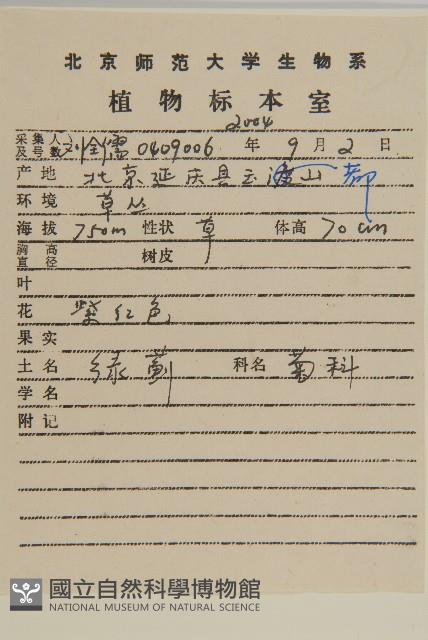 北京师范大学生物系
植物标本室
2004
采集人及号数 刘全儒 0409006 年 9 月 2 日
产地 北京延庆县玉渡山
环境 草丛
海拔 750m 性状 草 体高 70cm
胸高直径 树皮
叶
花 紫红色
果实
土名 绿蓟 科名 菊科
学名
附记
國立自然科學博物館
NATIONAL MUSEUM OF NATURAL SCIENCE